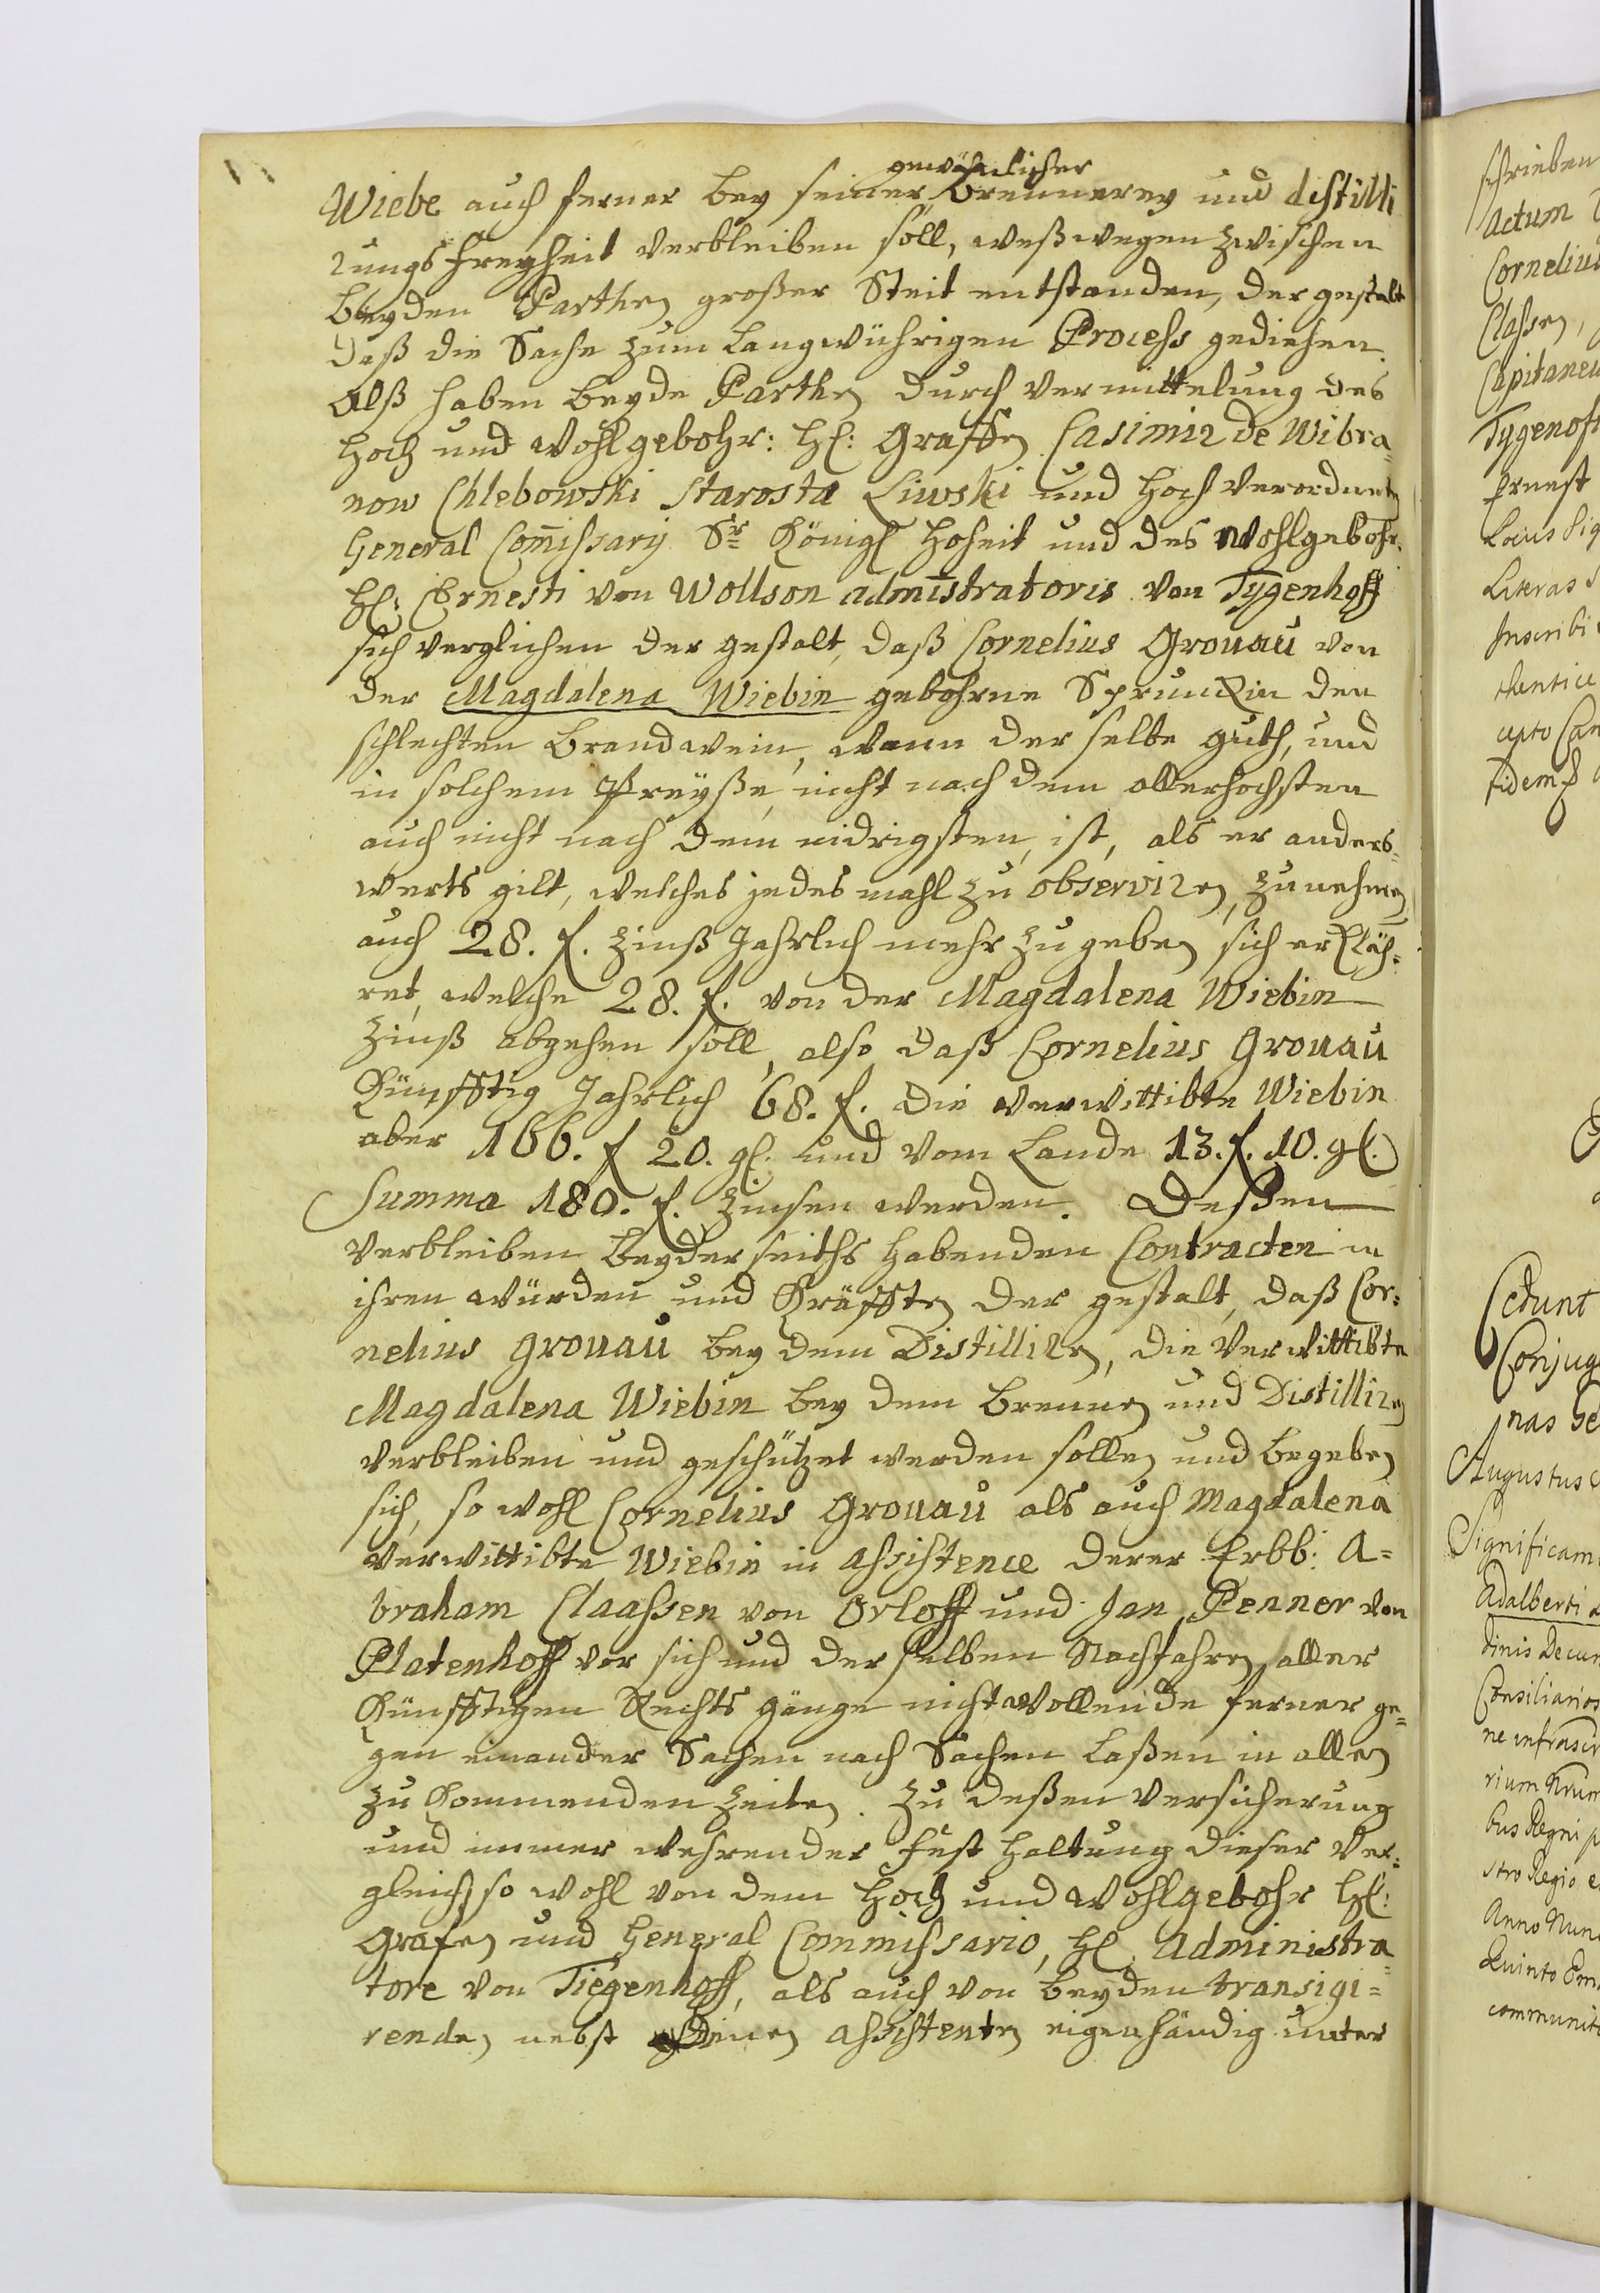 gewöhnlicher
Wiebe auch ferner bey seiner Brennerey und destilli
rungs freyheit verbleiben soll, weßwegen zwischen
beyden Parthen großer Steit entstanden, der gestalt
daß die Sache zum langwührigen Process gediehen.
Alß haben beyde Parthen durch Vermittelung des
Hoch und Wohlgebohr: H: Graffen Casimir de Wibra=
now Chlebowski Starosta Liwski und Hoch Verordneten
General Com̄issarij Sr Königl Hoheit und des Wohlgebohr.
H: Ernesti von Wollson adminstratoris von Tygenhoff
sich verglichen der gestalt, daß Cornelius Grouau von
der Magdalena Wiebin gebohrne Sprunckin den
schlechten Brandwein, wann der selbe guth, und
in solchem Preyße, nicht nach dem allerhochsten
auch nicht nach dem nidrigsten, ist, als er anders=
werts gilt, welches jedes mahl zu observiren, zunehmen
auch 28. f. Zinß Jahrlich mehr zu geben sich erkläh=
ret, welche 28. f. von der Magdalena Wiebin
Zinß abgehen soll, also daß Cornelius Grouau
Künfftig Jahrlich 68. f. die verwittibte Wiebin
aber 166. f 20. gl. und vom Lande 13. f. 10. gl.
Summa 180. f. Zinsen werden. Deßen
verbleiben beyderseiths habenden Contracten in
ihren würden und Kräfften der gestalt, daß Cor=
nelius Grouau bey dem Distilliren, die Verwittibte
Magdalena Wiebin bey dem Brennen und Distilliren
verbleiben und geschützet werden sollen und begeben
sich, so wohl Cornelius Grouau als auch Magdalena
verwittibte Wiebin in assistence derer Erbb: A=
braham Claassen von Orloff und Jan Penner von
Platenhoff vor sich und der selben Nachfahren, aller
Künfftigen Rechts gänge nicht wollende ferner ge=
gen einander Sachen nach Sachen laßen in allen
zu Kommenden Zeiten. Zu deßen Versicherung
und immer wehrender fest haltung dieser Ver=
gleich, so wohl von dem Hoch und Wohlgebohr H:
Grafen und General Commissario, H: Administra=
tore von Tiegenhoff, als auch von beyden transigi=
renden nebst denen assistenten eigenhändig unter
schrieben
Actum
Cornelius
Classen,
Capitaneu
Tygenof
Ernest
Locus Sig
Literas
Inscribi
thentice
cepto Can
fidem
Conjug
nas
Augustus
Significam
Adalberti
dinis Decan
Consiliarios
ne infrascr
rium
bus Regni
stro Regio
Anno
Quinto
communit